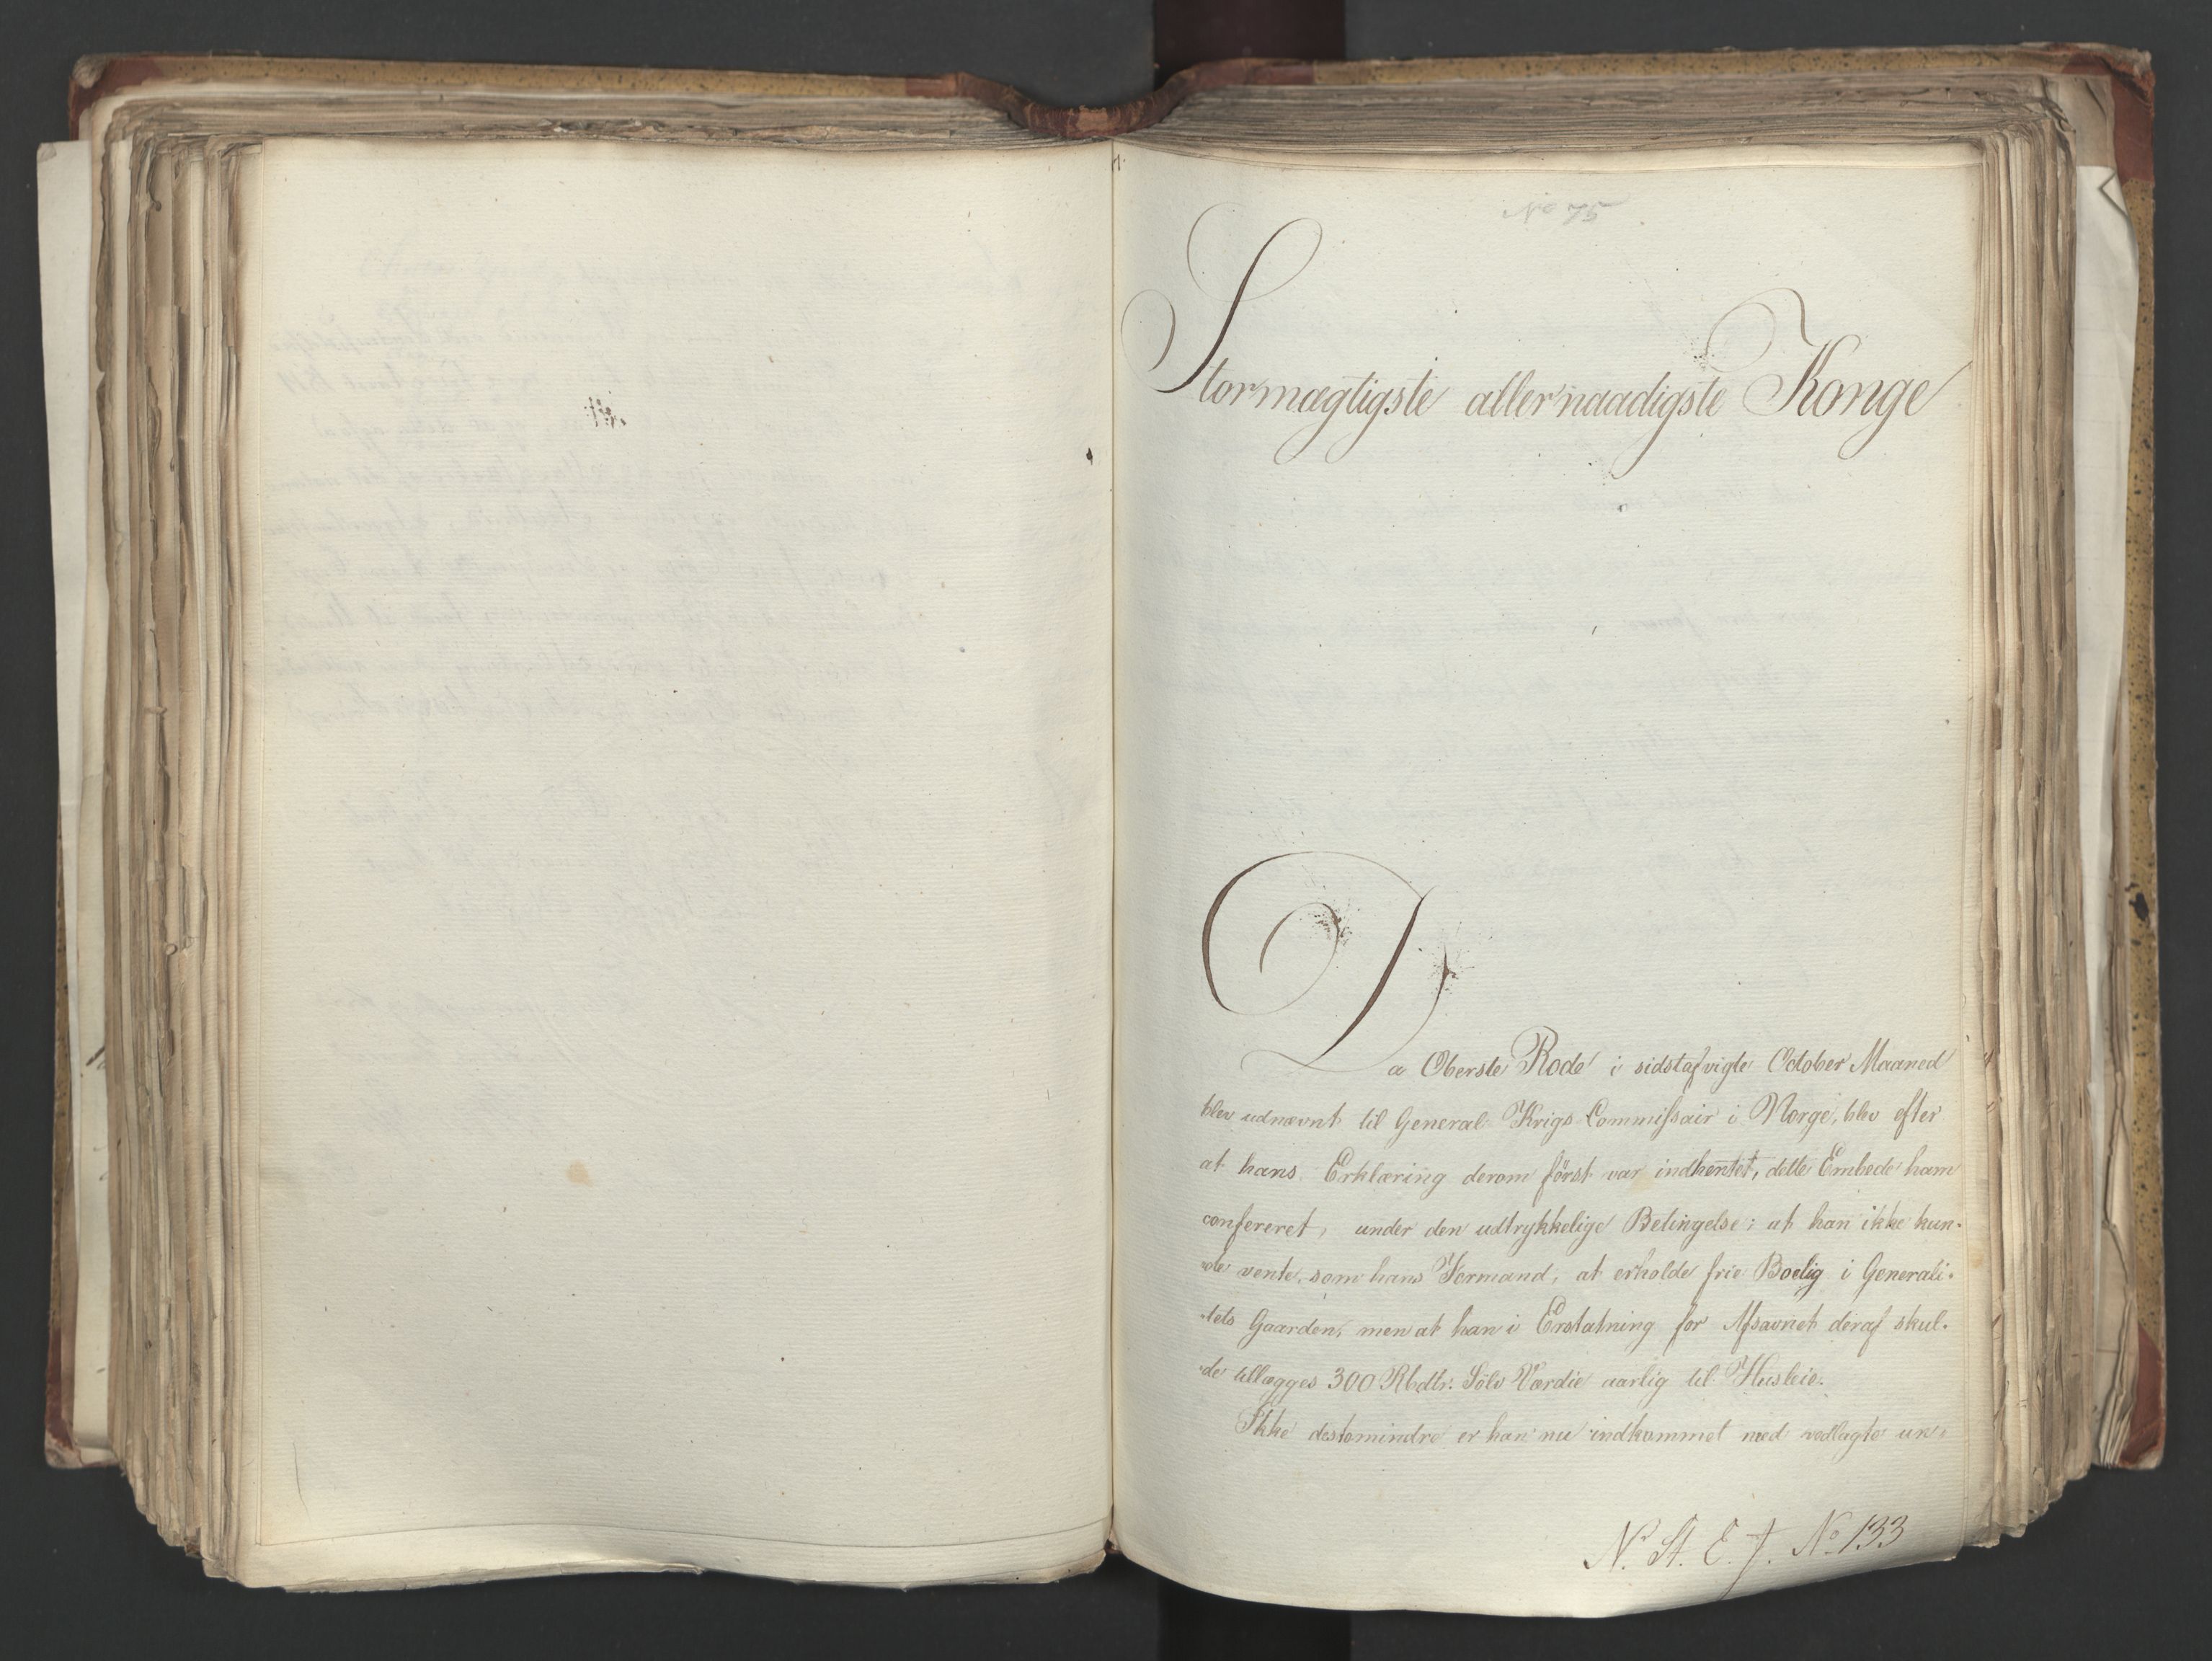 No 75
Stormægtigste allernaadigste Konge
Da Oberste Rode i sidstafvigte October Maaned
blev udnævnt til General Krigs Commissair i Norge, blev efter
at hans Erklæring derom først var indhentet, dette Embede ham
confereret, under den udtrykkelige Betingelse: at han ikke kun-
-de vente, som hans Formand, at erholde frie Boelig i Generali-
-tets Gaarden, men at han i Erstatning for Afsavnet deraf skul-
-de tillægges 300 Rbdlr. Sölv Værdie aarlig til Husleie.
Ikke destomindre er han nu indkommet med vedlagte un-
N. St. E. J. No 133